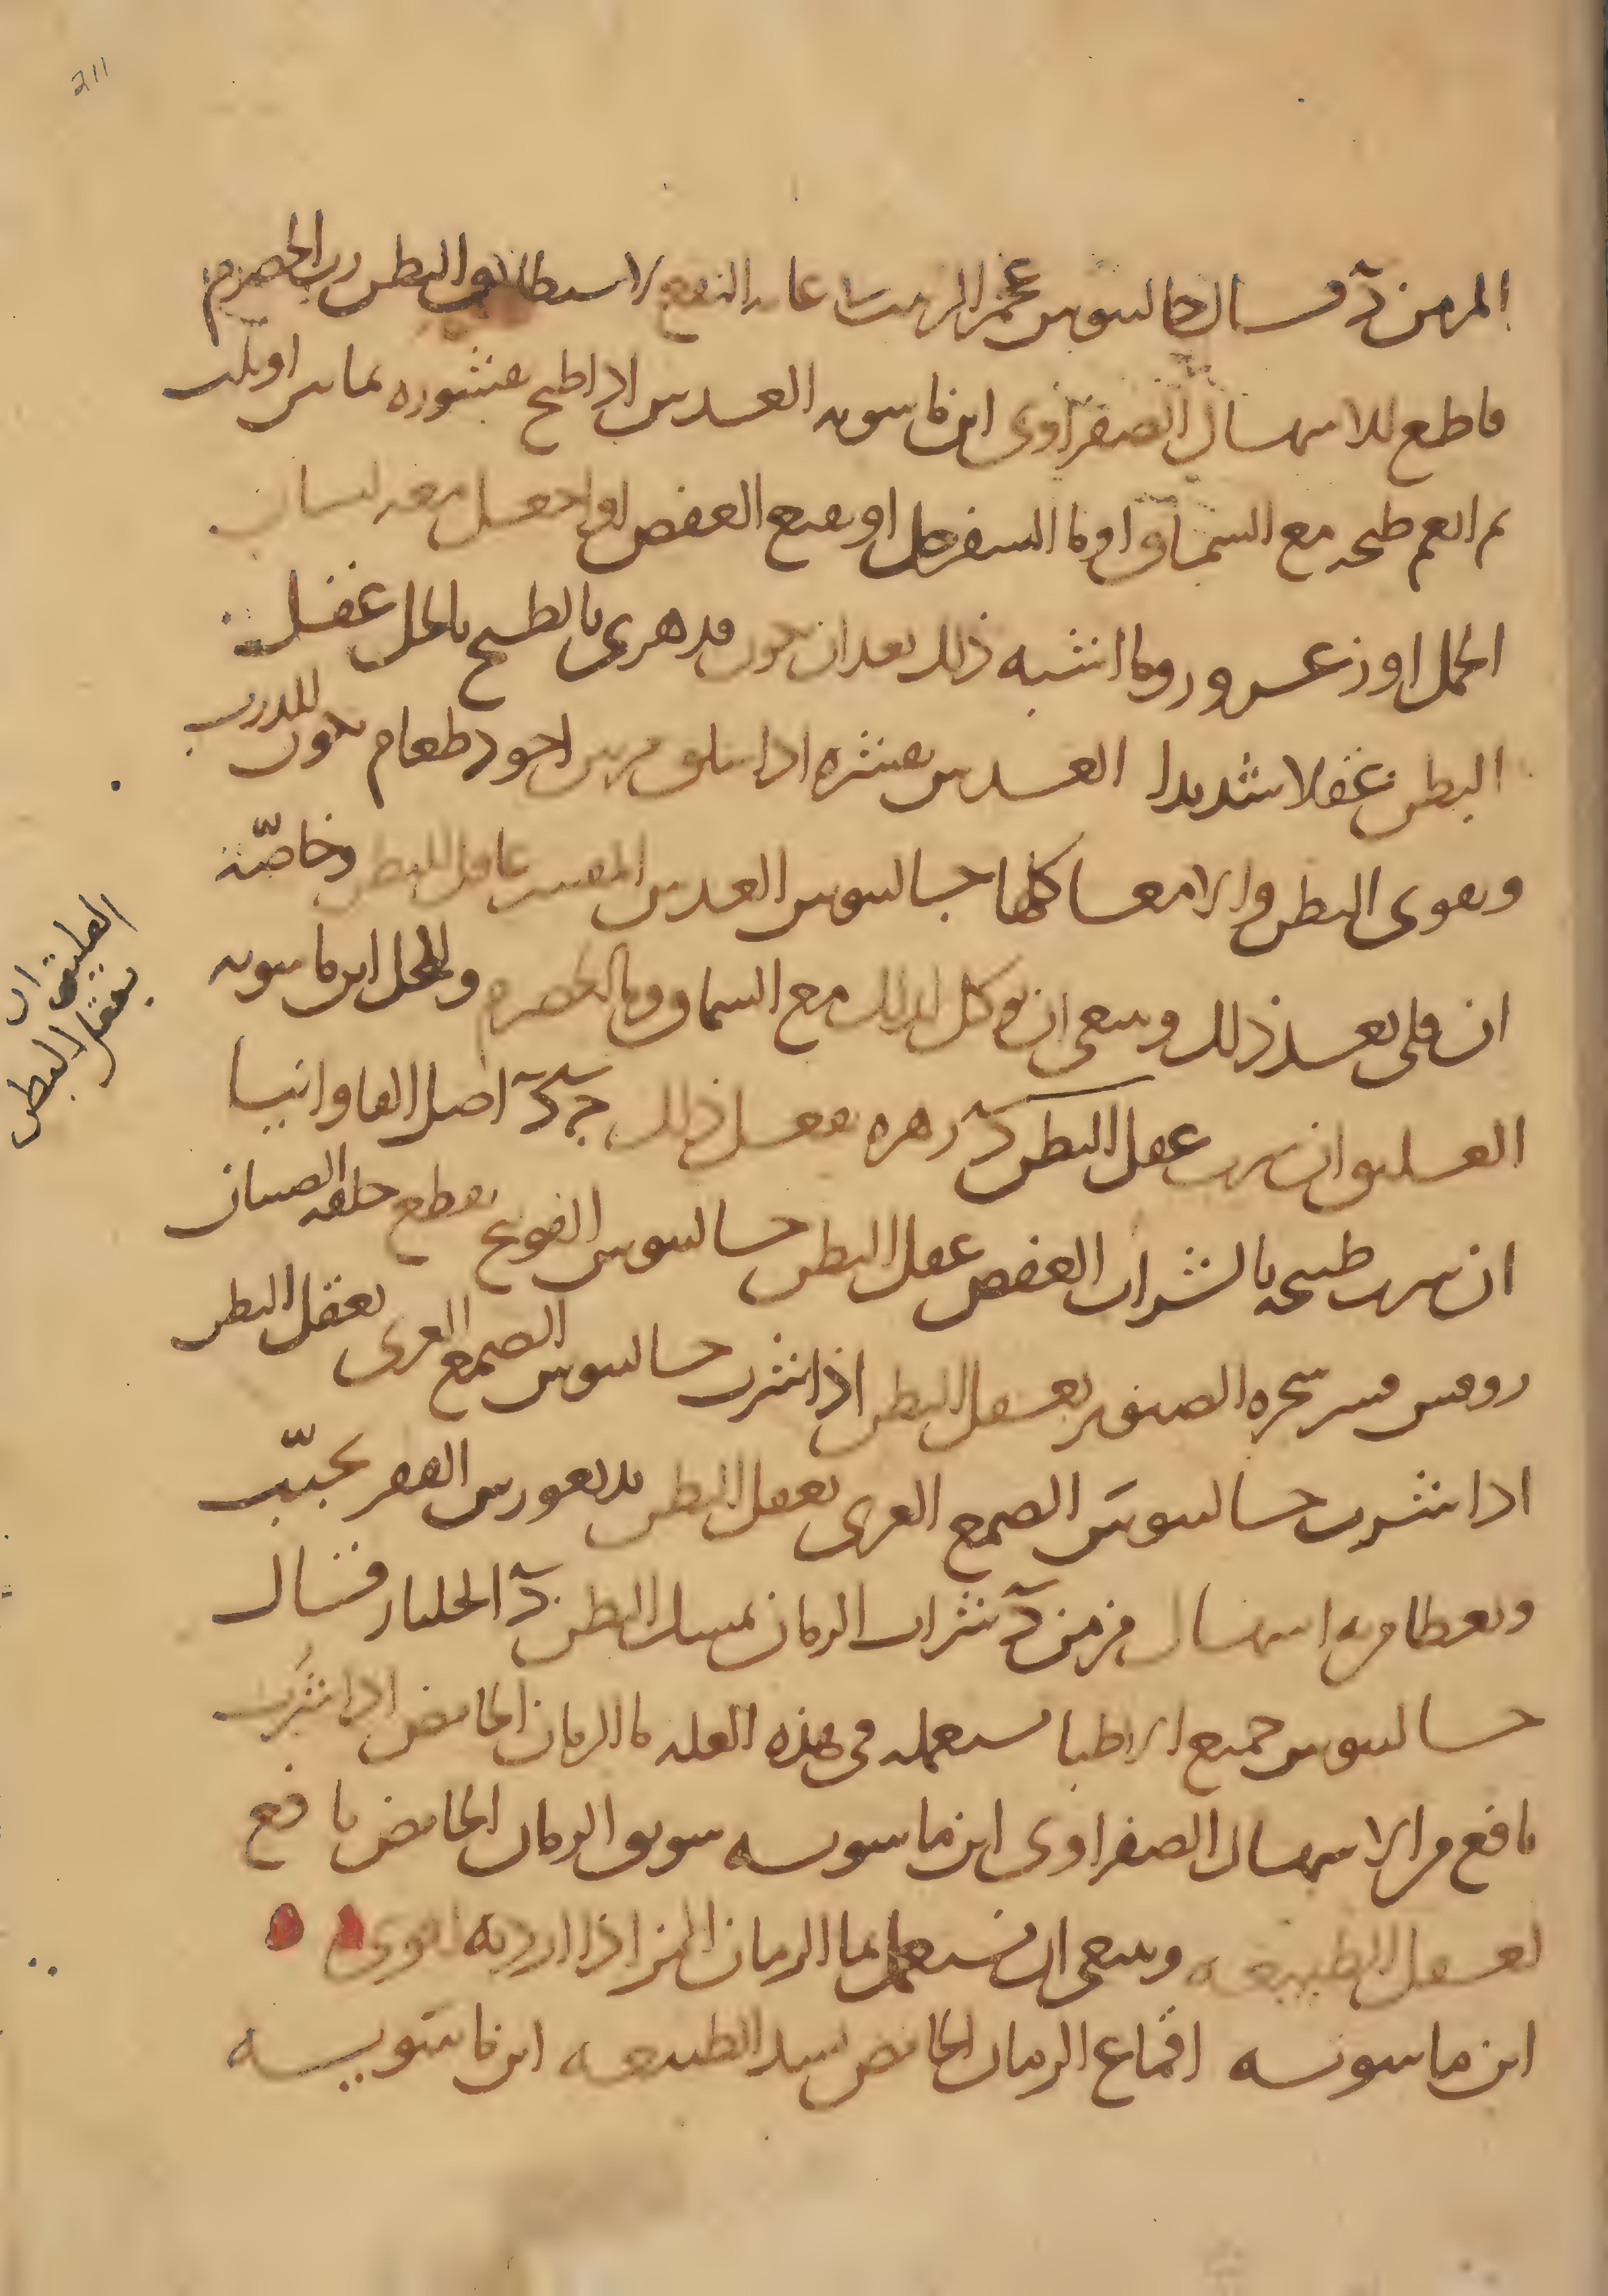 211
المزمن د وقال جالينوس عجم الزبيب غاية النفع لاستطلاق البطن رب الحصرم
قاطع للاسهال الصفراوى ابن ماسويه العدس اذا طبخ بقشوره بماين او ثلث
ثم انعم طبخه مع السماق او ما السفرجل او بقيع العفص او اجعل معه لسان
الحمل او زعرور وما اشبه ذلك بعد ان يكون قد هرى بالطبخ بالخل عقل
البطن عقلا شديدا العدس بقشره اذا سلق مرتين اجود طعام يكون للذرب
ويقوى البطن والامعا كلها جالينوس العدس المقشر عاقل للبطن وخاصة
ان قلى بعد ذلك وينبغى ان يوكل كذلك مع السماق وما الحصرم والخل ابن ماسويه
العليق ان شرب عقل البطن د زهره يفعل ذلك ج د اصل الفاوانيا
ان شرب طبيخه بالشراب العفص عقل البطن جالينوس الفوتنج يقطع خلفه الصبيان
روفس قشر شجره الصنوبر يعقل البطن اذا شرب جالينوس الصمغ العربى يعقل البطن
اذا شرب جالينوس الصمغ العربى يعقل البطن بديغورس القفر يحبب
ويعطا من به اسهال مزمن د شراب الرمان يمسك البطن د الجلنار وقال
جالينوس جميع الاطبا يستعمله فى هذه العله ما الرمان الحامض اذا شرب
نافع من الاسهال الصفراوى ابن ماسويه سويق الرمان الحامض نافع
لعقل الطبيعه وينبغى ان يستعمل ما الرمان المز اذا اردته اقوى
ابن ماسويه اقماع الرمان الحامض تشد الطبيعه ابن ماسويه
العليق ان
يعقل البطن